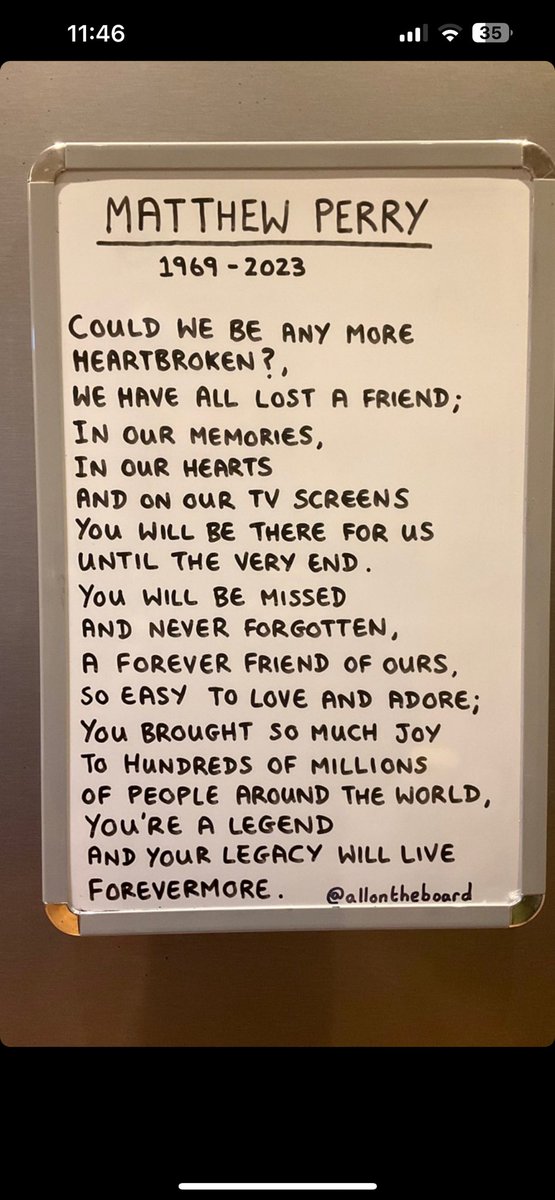 11:46
35
MATTHEW PERRY
1969-2023
COULD WE BE ANY MORE
HEARTBROKEN?,
WE HAVE ALL LOST A FRIEND;
IN OUR MEMORIES,
IN OUR HEARTS
AND ON OUR TV SCREENS
YOU WILL BE THERE FOR US
UNTIL THE VERY END.
YOU WILL BE MISSED
AND NEVER FORGOTTEN,
A FOREVER FRIEND OF OURS,
SO EASY TO LOVE AND ADORE;
YOU BROUGHT SO MUCH JOY
TO HUNDREDS OF MILLIONS
OF PEOPLE AROUND THE WORLD,
YOU'RE A LEGEND
AND YOUR LEGACY WILL LIVE
FOREVERMORE. @allontheboard